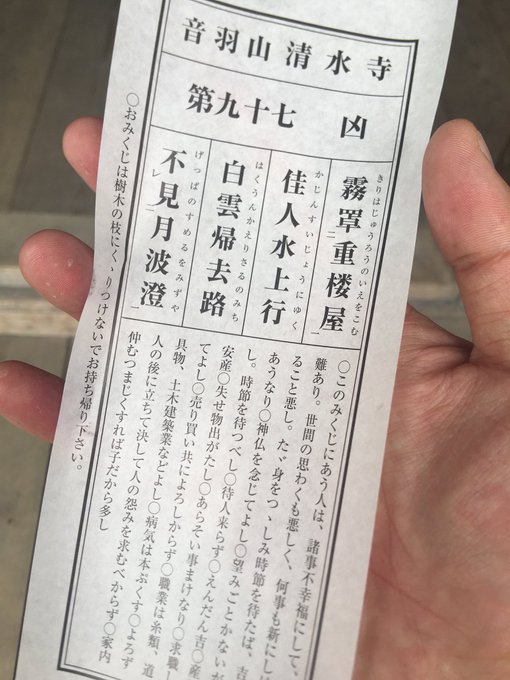 音羽山清水寺
第九十七 凶
霧罩二重楼屋一
きりはじゅうろうのいえをこむ
佳人水上行
かじんすいじょうにゆく
白雲帰去路
はくうんかえりさるのみち
不レ見二月波澄一
げっぱのすめるをみずや
〇このみくじにあう人は、諸事不幸福にして、
難あり。世間の思わくも悪しく、何事も新にしは
ること悪し。たゞ身をつゝしみ時節を待たば、吉
あうなり〇神仏を念じてよし〇望みごとかないが
し。時節を待つべし〇待人来らず〇えんだん吉〇産
安産〇失せ物出がたし〇あらそい事まけなり〇求職し
てよし〇売り買い共によろしからず〇職業は糸類、道
具物、土木建築業などよし〇病気は本ぷくす〇よろず
人の後に立ちて決して人の怨みを求むべからず〇家内
仲むつまじくすれば子だから多し
〇おみくじは樹木の枝にくゝりつけないでお持ち帰り下さい。